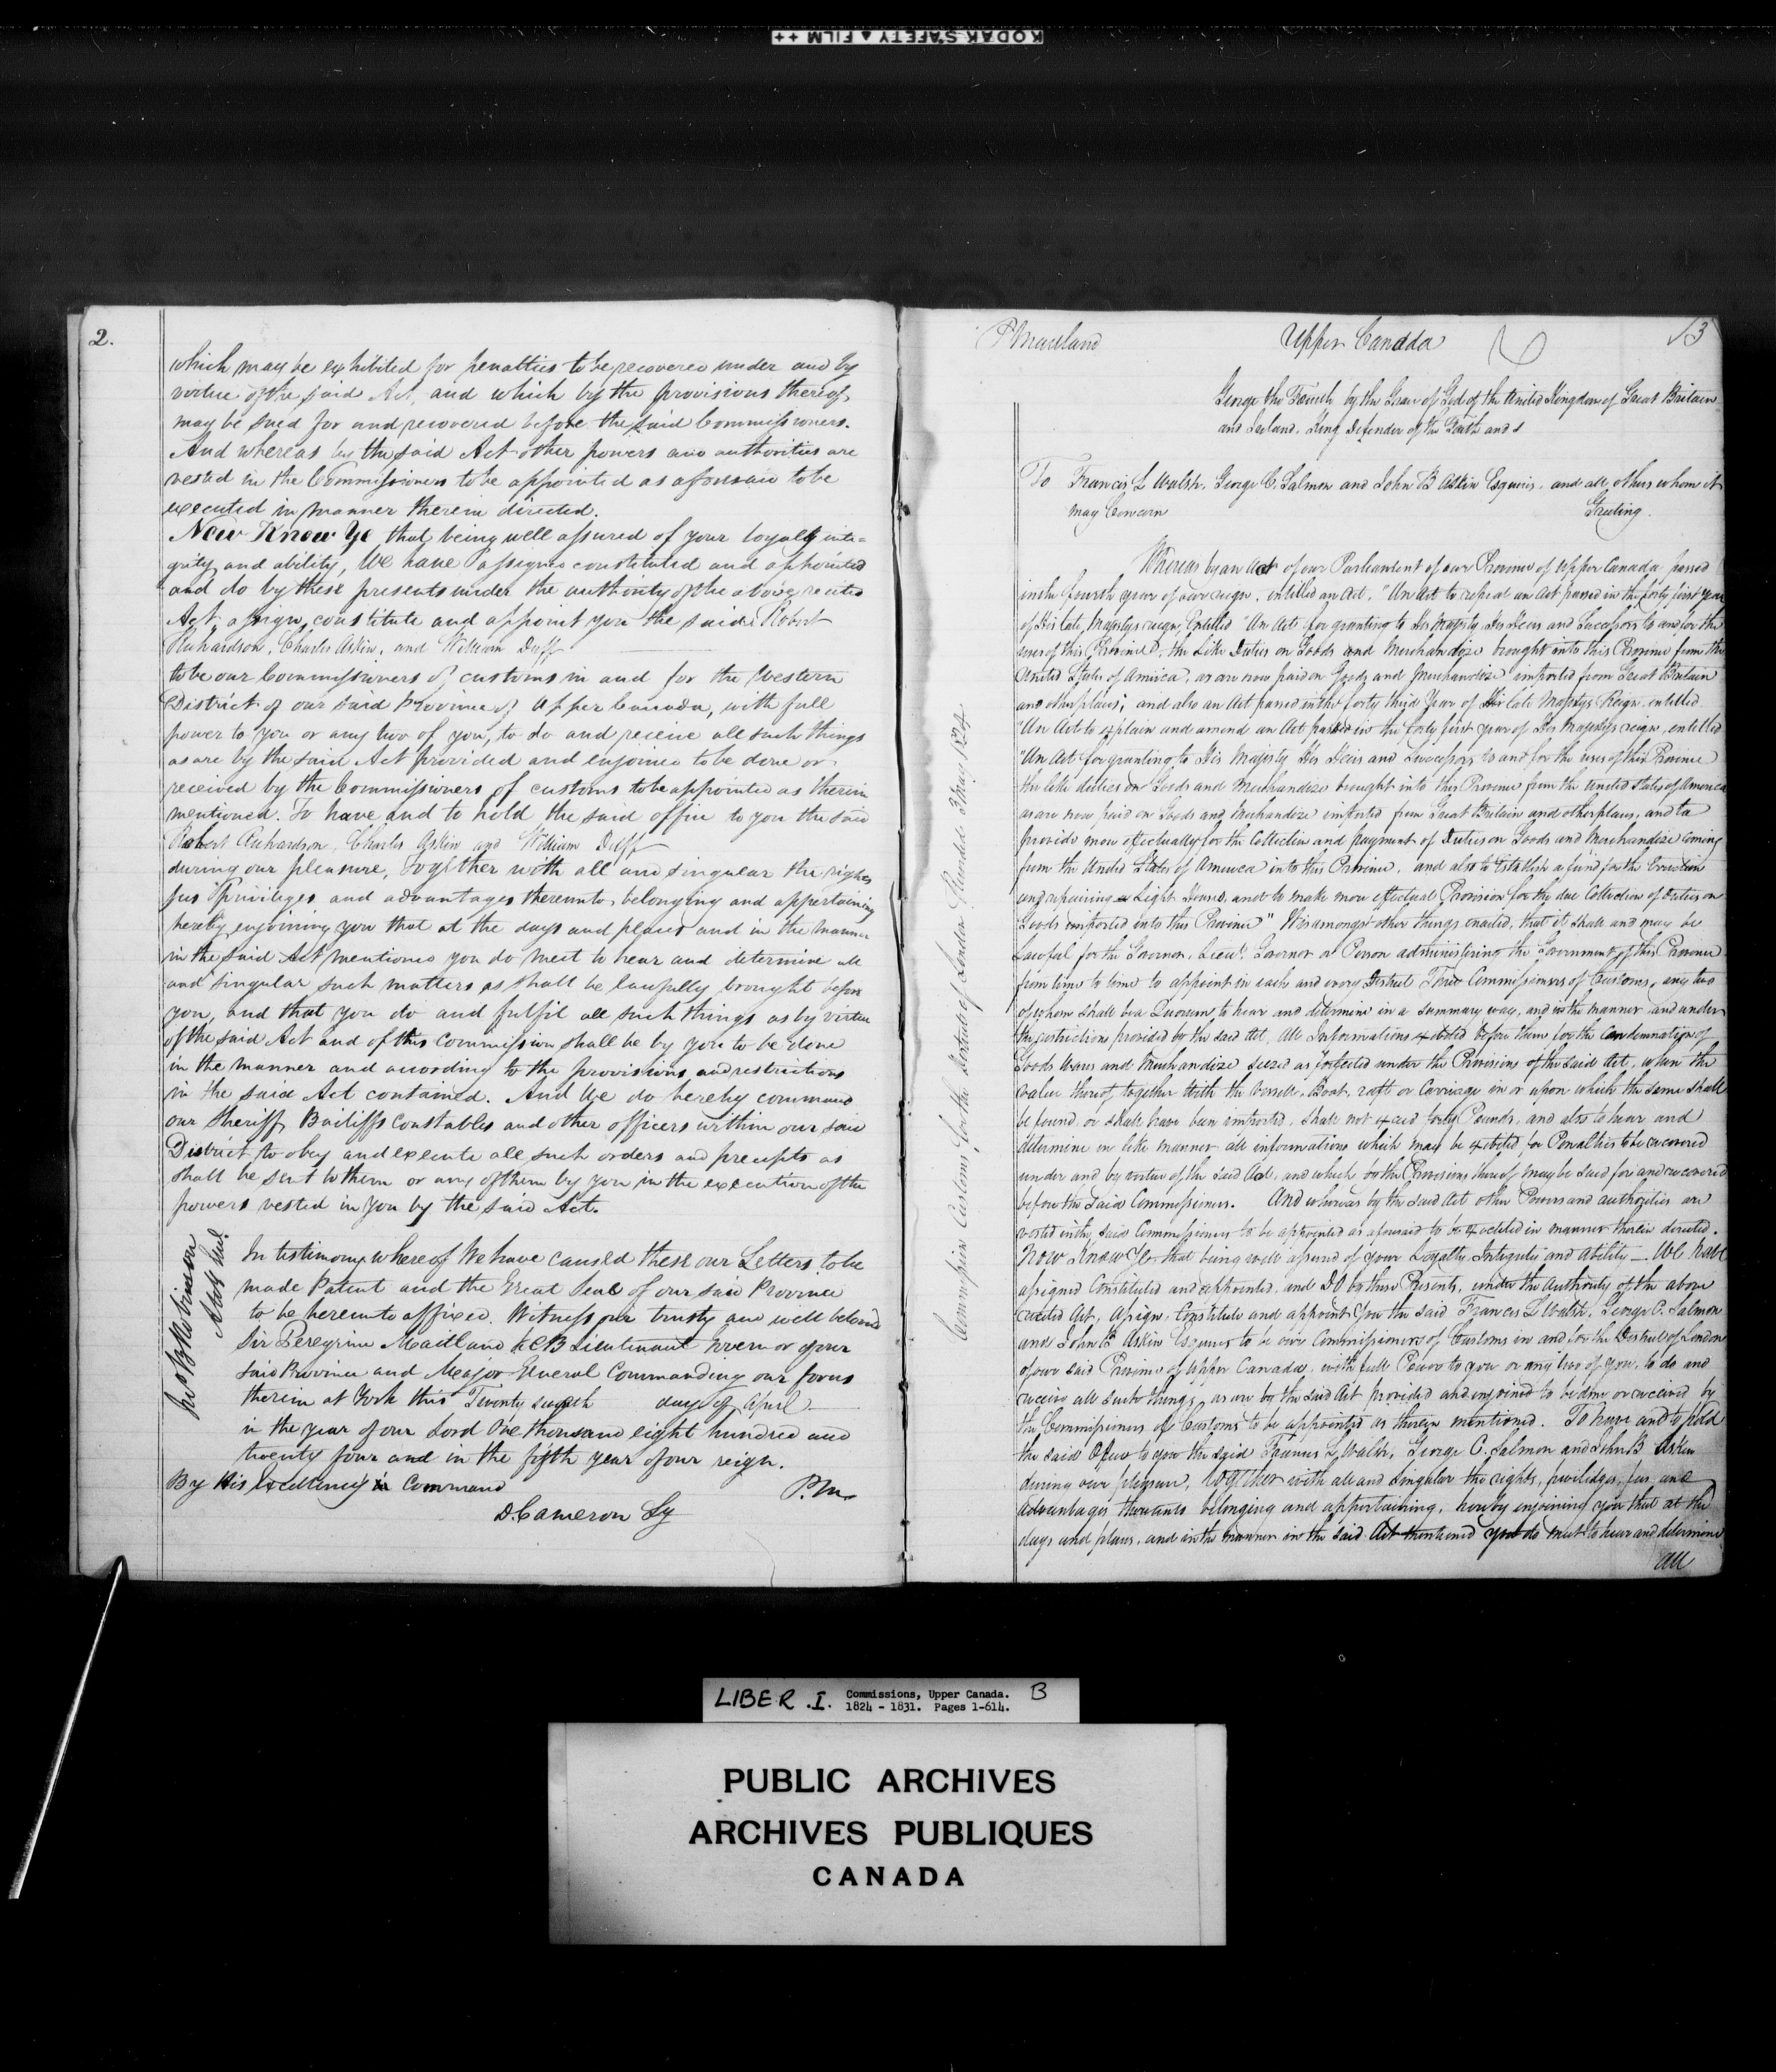 KODAK SAFETY ▲ FILM ++
2.
which may be exhibited for penalties to be recovered under and by
virtue of the said Act, and which by the provisions thereof
may be sued for and recovered before the said Commissioners.
And whereas by the said Act other powers and authorities are
vested in the Commissioners to be appointed as aforesaid to be
executed in manner therein directed.
Now Know Ye that being well assured of your loyalty inte-
grity and ability, We have assigned constituted and appointed
and do by these presents under the authority of the above recited
Act, assign, constitute and appoint you the said Robert
Richardson, Charles Askin, and William Duff
to be our Commissioners of customs in and for the Western
District of our said Province of Upper Canada, with full
power to you or any two of you, to do and receive all such things
as are by the said Act provided and enjoined to be done or
received by the Commissioners of customs to be appointed as therein
mentioned. To have and to hold the said office to you the said
Robert Richardson, Charles Askin and William Duff
during our pleasure, together with all and singular the rights
fees Privileges and advantages thereunto belonging and appertaining
hereby enjoining you that at the days and places and in the manner
in the said Act mentioned you do meet to hear and determine all
and singular such matters as shall be lawfully brought before
you, and that you do and fulfil all such things as by virtue
of the said Act and of this Commission shall be by you to be done
in the manner and according to the provisions and restrictions
in the said Act contained. And We do hereby command
our Sheriff, Bailiffs Constables and other officers within our said
District to obey and execute all such orders and precepts as
shall be sent to them or any of them by you in the execution of the
powers vested in you by the said Act.
Jno B Robinson
Atty Genl
In testimony whereof We have caused these our Letters to be
made Patent and the Great Seal of our said Province
to be hereunto affixed. Witness our trusty and well beloved
Sir Peregrine Maitland KCB Lieutenant Governor of our
said Province and Major General Commanding our forces
therein at York this Twenty day of April
in the year of our Lord One thousand eight hundred and
twenty four and in the fifth year of our reign.
By His Excellency's Command
P.M.
D. Cameron Sy
P Maitland
Upper Canada
3
George the Fourth by the Grace of God of the United Kingdom of Great Britain
and Ireland, King Defender of the Faith and
To Francis L Walsh, George C. Salmon and John B Askin Esquires, and all others whom it
may Concern Greeting.
Commission Customs for the District of London 3 May 1824
Whereas by an Act of our Parliament of our Province of Upper Canada passed
in the fourth year of our reign, intitled an Act, "An Act to repeal an Act passed in the forty first year
of His late Majestys reign Entitled "An Act for granting to His Majesty His Heirs and Successors to and for the
uses of this Province, the Like Duties on Goods and Merchandize brought into this Province from the
United States of America, as are now paid on Goods and Merchandize imported from Great Britain
and other places; and also an Act passed in the forty third Year of His late Majestys Reign, entitled
"An Act to explain and amend an Act passed in the forty first year of His Majestys reign, entitled
"An Act for granting to His Majesty His Heirs and Successors to and for the uses of this Province
the like duties on Goods and Merchandize brought into this Province from the United States of America
as are now paid on Goods and Merchandize imported from Great Britain and other places, and to
provide more effectually for the Collection and payment of Duties on Goods and Merchandize Coming
from the United States of America into this Province, and also to Establish a fund for the Erection
and repairing Light Houses, and to make more effectual Provision for the due Collection of Duties on
Goods imported into this Province" It is amongst other things enacted, that it shall and may be
Lawful for the Governor, Lieut. Governor or Person administering the Government of this Province
from time to time to appoint in each and every District Three Commissioners of Customs, any two
of whom shall be a Quorum to hear and determine in a summary way, and in the manner and under
the restrictions provided by the said Act, All Informations exhibited before them for the Condemnation of
Goods Wares and Merchandize seized as forfeited under the Provisions of the said Act, when the
value thereof together with the Vessell, Boat, raft or Carriage in or upon which the same shall
be found, or shall have been imported, shall not exceed forty Pounds, and also to hear and
determine in like manner all informations which may be exhibited, for Penalties to be recovered
under and by virtue of the said Act, and which by the Provisions thereof may be sued for and recovered
before the said Commissioners. And whereas by the said Act other Powers and authorities are
vested in the said Commissioners to be appointed as aforesaid to be executed in manner therein directed.
Now Know Ye that being well assured of your Loyalty, Integrity and Ability — We have
assigned Constituted and appointed, and Do by these Presents, under the Authority of the above
recited Act, Assign, Constitute and appoint You the said Francis L Walsh, George C. Salmon
and John B Askin Esquires to be our Commissioners of Customs in and for the District of London
of our said Province of Upper Canada, with full Power to you or any two of you, to do and
receive all such things as are by the said Act provided and enjoined to be done or received by
the Commissioners of Customs to be appointed as therein mentioned. To have and to hold
the said Office to you the said Francis L Walsh, George C. Salmon and John B Askin
during our pleasure, together with all and singular the rights, priviledges, fees and
advantages thereunto belonging and appertaining, hereby enjoining you that at the
days and places, and in the manner in the said Act mentioned you do meet to hear and determine
all
LIBER .I. Commissions, Upper Canada. B
1824 - 1831. Pages 1-614.
PUBLIC ARCHIVES
ARCHIVES PUBLIQUES
CANADA